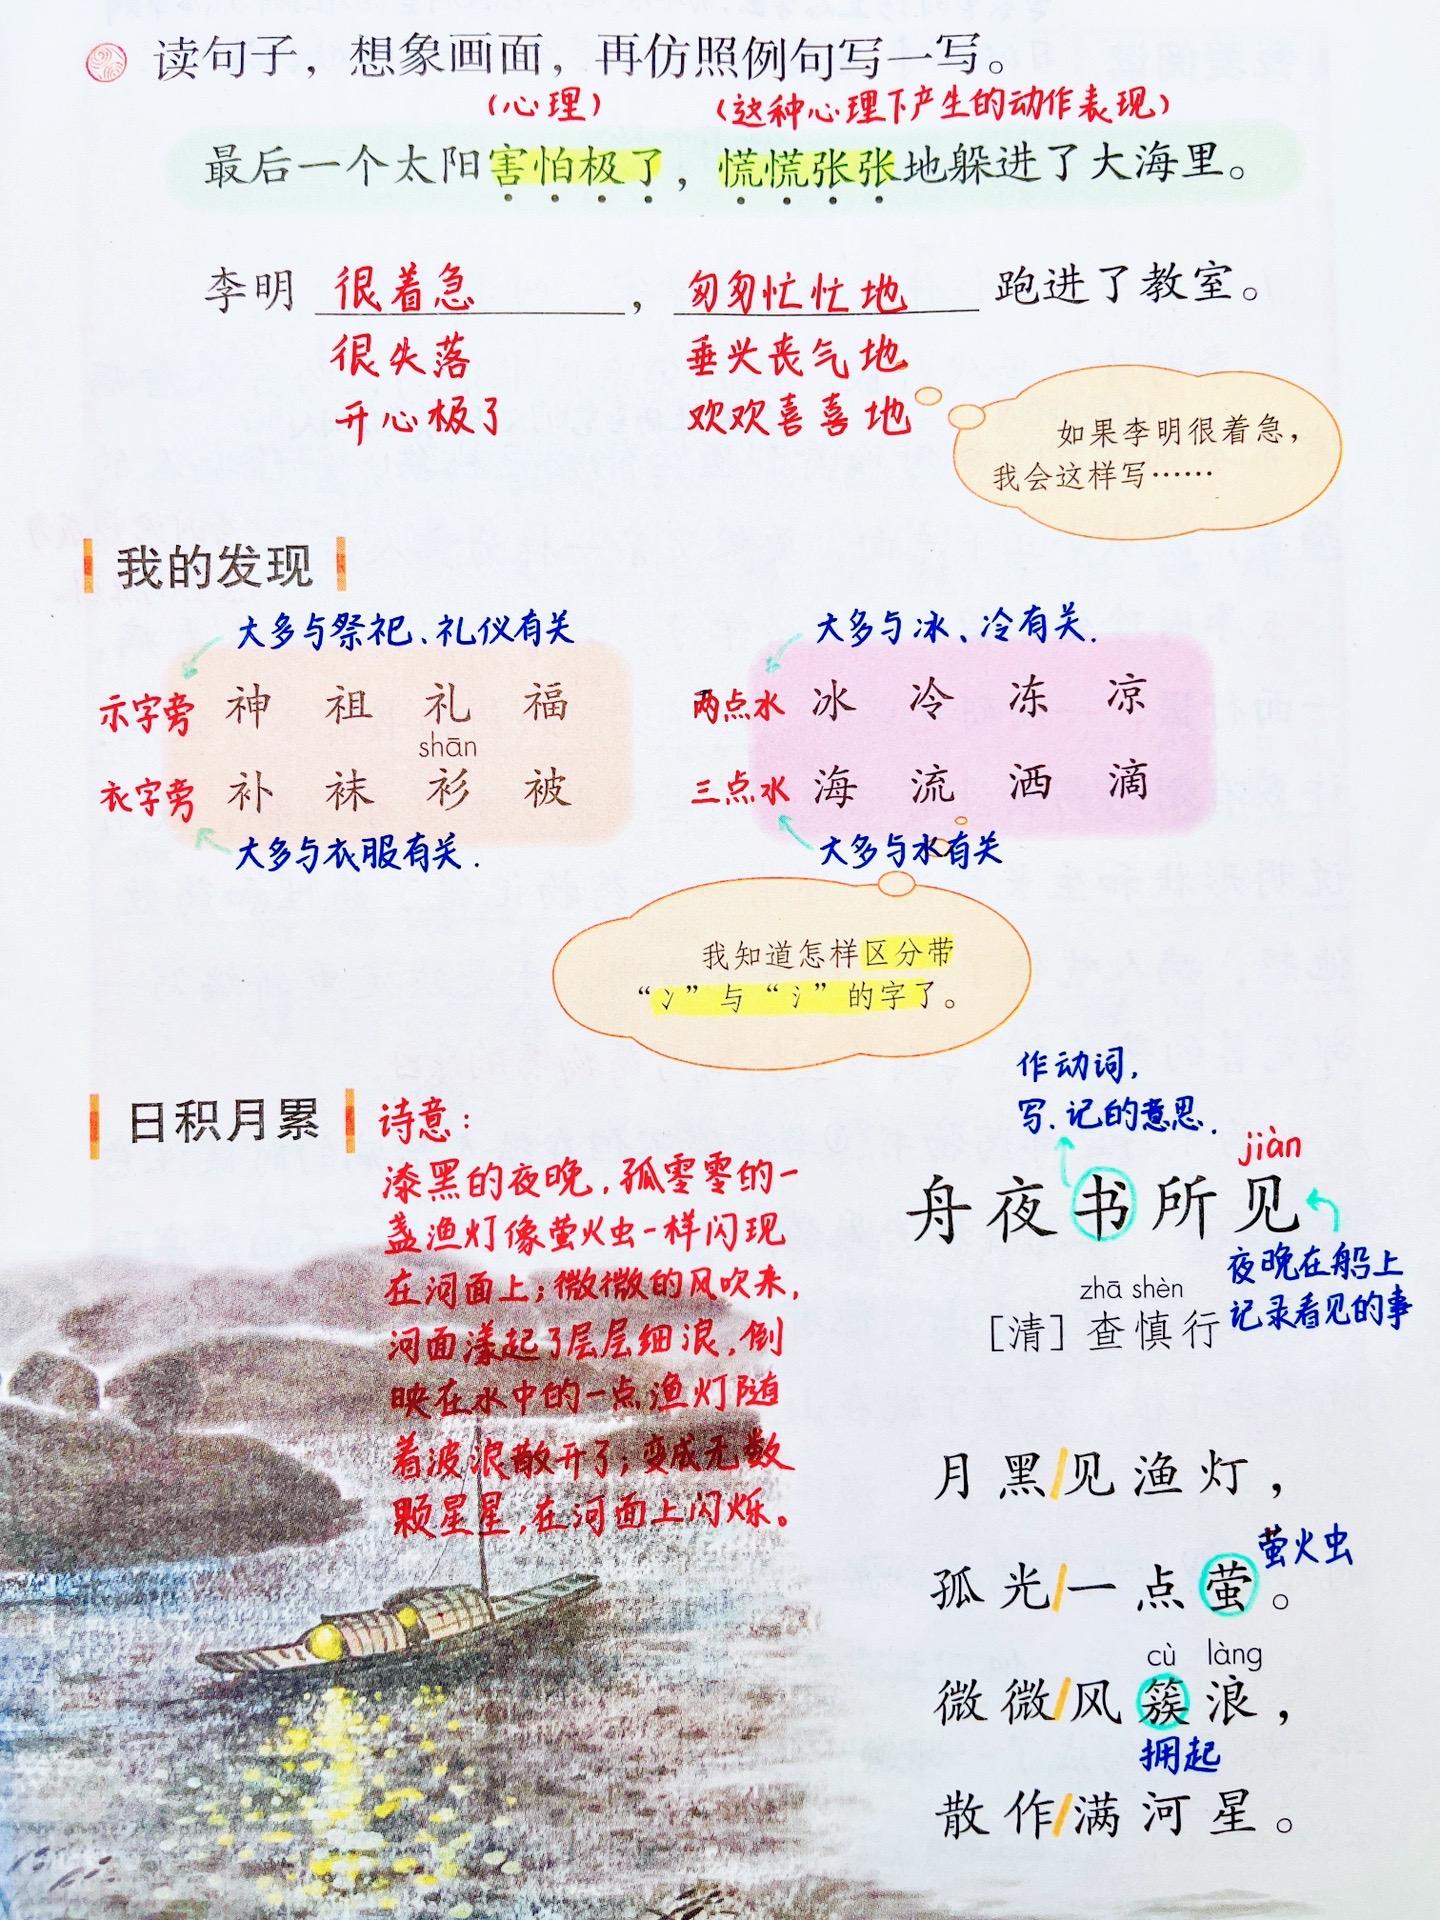 读句子，想象画面，再仿照例句写一写。
（心理）　（这种心理下产生的动作表现）
最后一个太阳害怕极了，慌慌张张地躲进了大海里。
李明 很着急，匆匆忙忙地 跑进了教室。
很失落　垂头丧气地
开心极了　欢欢喜喜地
如果李明很着急，
我会这样写……
我的发现
大多与祭祀、礼仪有关
示字旁 神 祖 礼 福
shān
衣字旁 补 袜 衫 被
大多与衣服有关.
大多与冰、冷有关.
两点水 冰 冷 冻 凉
三点水 海 流 洒 滴
大多与水有关
我知道怎样区分带
“冫”与“氵”的字了。
日积月累
诗意：
漆黑的夜晚，孤零零的一
盏渔灯像萤火虫一样闪现
在河面上；微微的风吹来，
河面漾起了层层细浪，倒
映在水中的一点渔灯随
着波浪散开了；变成无数
颗星星，在河面上闪烁。
作动词，
写、记的意思.
jiàn
舟夜书所见
夜晚在船上
记录看见的事
zhā shèn
［清］查慎行
月黑/见渔灯，
孤光/一点萤。
萤火虫
cù làng
微微/风簇浪，
拥起
散作/满河星。